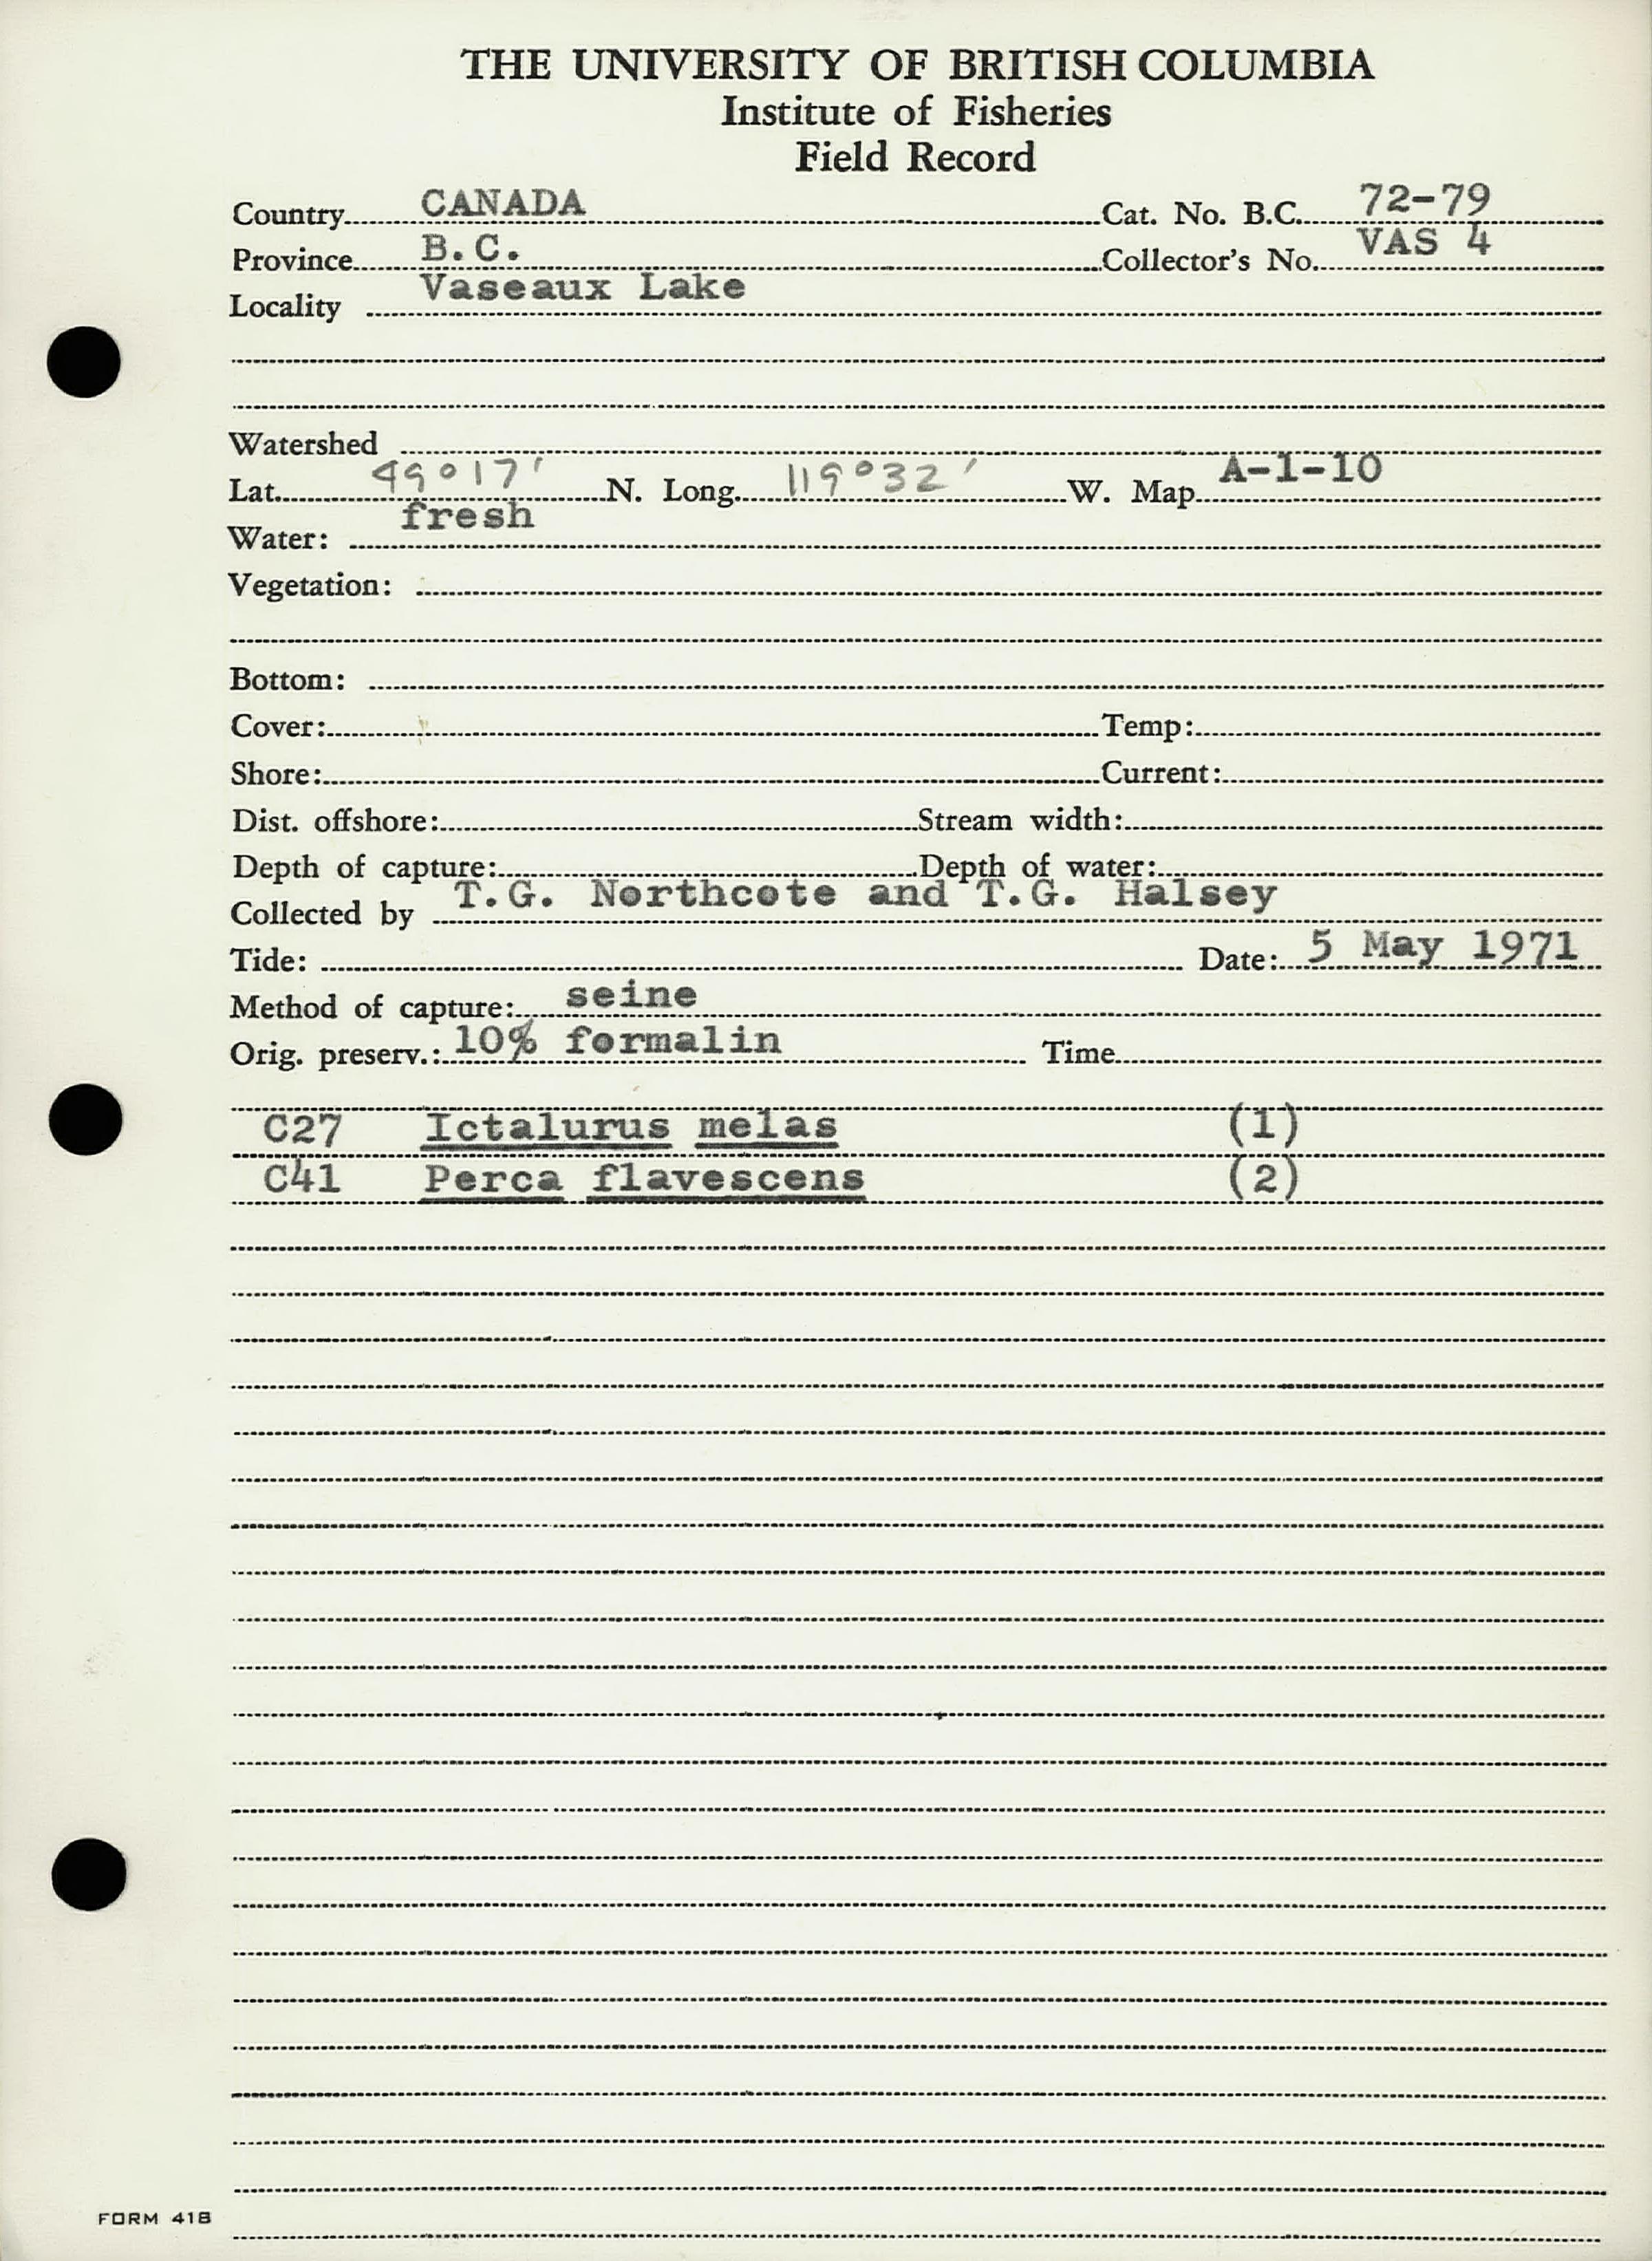 THE UNIVERSITY OF BRITISH COLUMBIA
Institute of Fisheries
Field Record
Country CANADA Cat. No. B.C. 72-79
Province B.C. Collector's No. VAS 4
Locality Vaseaux Lake
Watershed
Lat. 49°17' N. Long. 119°32' W. Map A-1-10
Water: fresh
Vegetation:
Bottom:
Cover: Temp:
Shore: Current:
Dist. offshore: Stream width:
Depth of capture: Depth of water:
Collected by T.G. Northcote and T.G. Halsey
Tide: Date: 5 May 1971
Method of capture: seine
Orig. preserv.: 10% formalin Time
C27 Ictalurus melas (1)
C41 Perca flavescens (2)
FORM 418